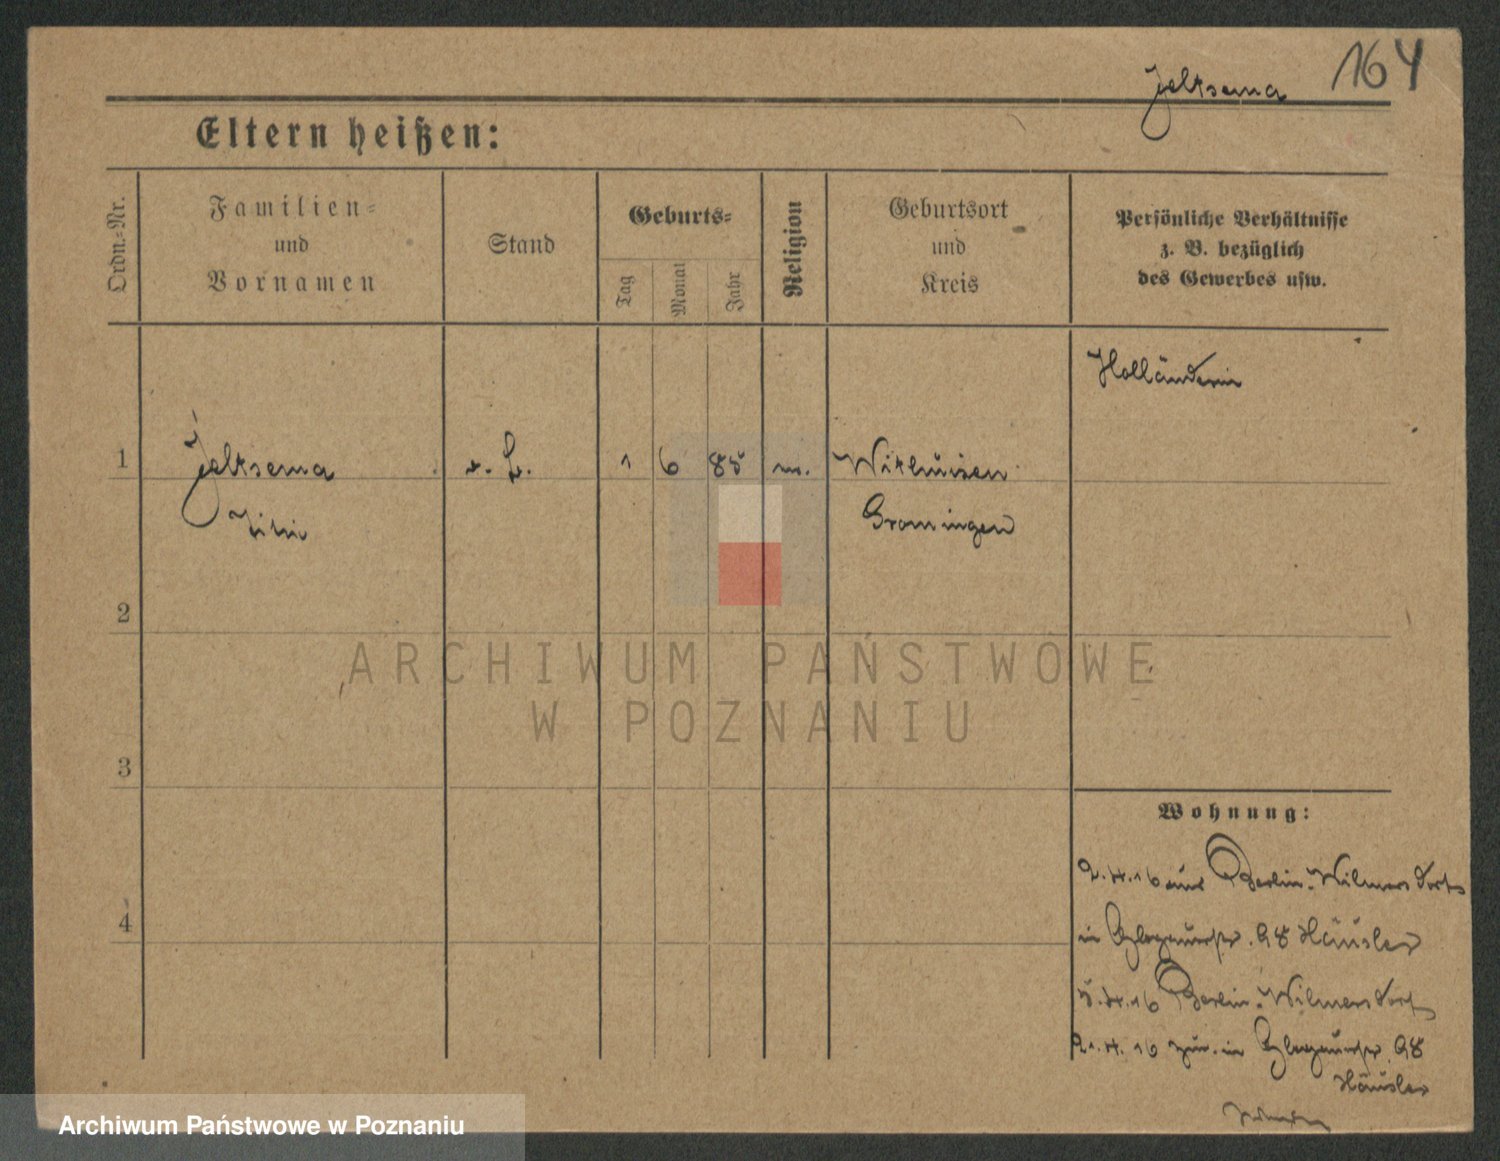 164
Jeltsema
Eltern heißen:
Ordn.=Nr.
Familien=
und
Vornamen
Stand
Geburts=
Tag
Monat
Jahr
Religion
Geburtsort
und
Kreis
Persönliche Verhältnisse
z. B. bezüglich
des Gewerbes usw.
Holländerin
1 Jeltsema 1 6 85 m. Withuisen
Groningen
2
ARCHIWUM PAŃSTWOWE
W POZNANIU
3
Wohnung:
2.4.16 aus Berlin-Wilmersdorf
4
in Glogauerstr. 98 Häusler
5.4.16 Berlin-Wilmersdorf
21.4.16 zur. in Glogauerstr. 98
Häusler
Archiwum Państwowe w Poznaniu